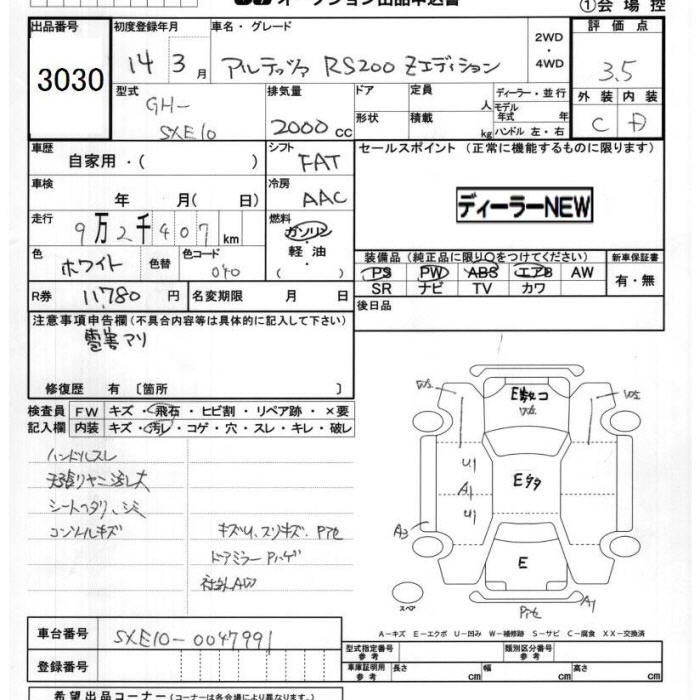 オークション出品申込書
①会場控
出品番号 初度登録年月 車名・グレード 2WD・4WD 評価点
3030 14 3月 アルテッツァ RS200 Zエディション 3.5
型式 排気量 ドア 定員 人 ディーラー・並行 外装 内装
GH- SXE10 2000cc 形状 積載 kg モデル年式 年 ハンドル 左・右 C D
車歴 シフト セールスポイント (正常に機能するものに限ります)
自家用・( ) FAT
車検 年 月(日) 冷房 AAC
ディーラーNEW
走行 9万2千407km 燃料 ガソリン 軽油 ( ・ )
色 ホワイト 色替 色コード 040
装備品 (純正品に限り○をつけてください) 新車保証書
PS PW ABS エアB AW 有・無
SR ナビ TV カワ
R券 11,780円 名変期限 月 日
後日品
注意事項申告欄(不具合内容等は具体的に記入して下さい)
雹害アリ
修復歴 有 〔箇所 〕
検査員 FW キズ・飛石・ヒビ割・リペア跡・×要
記入欄 内装 キズ・汚レ・コゲ・穴・スレ・キレ・破レ
ハンドルスレ
天張りヤニ汚レ大
シートヘタリ、シミ
コンソールキズ
キズU、スリキズ、Pアセ
ドアミラーPハゲ
社外AW
U1
A1
U1
A3
Eタタ
E
Pアセ
A1
スペア
A-キズ E-エクボ U-凹み W-補修跡 S-サビ C-腐食 XX-交換済
車台番号 SXE10-0047991
登録番号
型式指定番号 参考 類別区分番号 参考
車庫証明用 参考 長さ cm 幅 cm 高さ cm
希望出品コーナー (コーナーは各会場により異なります。)